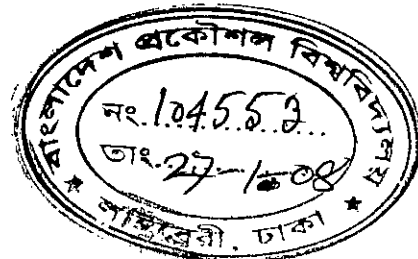 বাংলাদেশ প্রকৌশল বিশ্ববিদ্যালয়
নং. 104553
তাং. 27-1-08
লাইব্রেরী, ঢাকা